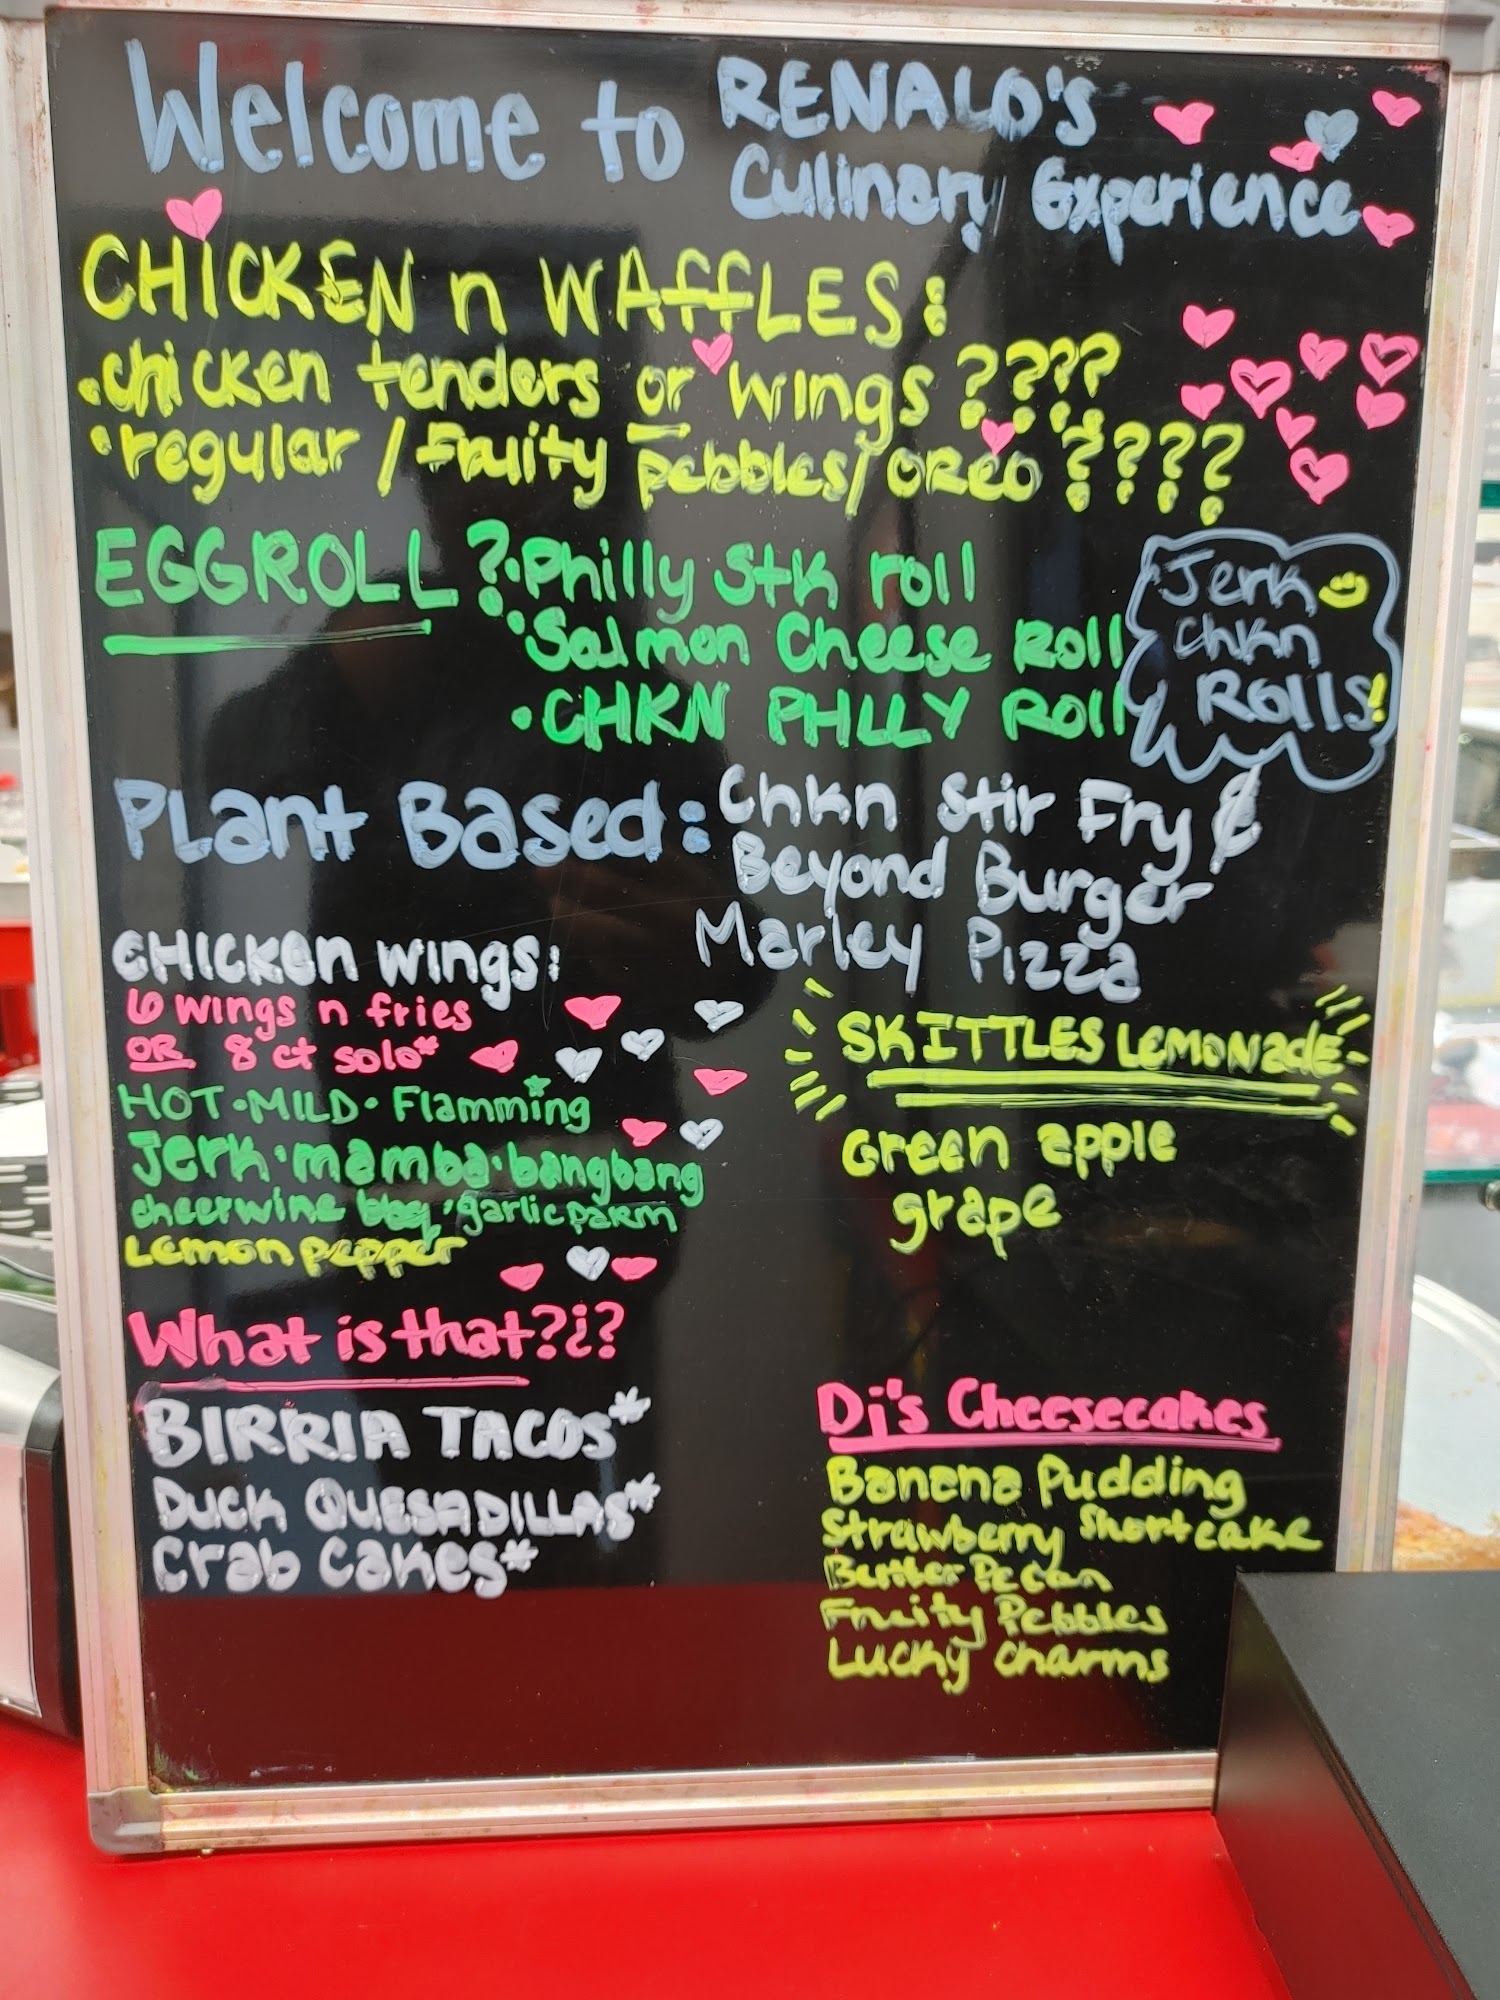 Welcome to RENALO'S
Culinary Experience
CHICKEN n WAffLES:
• chicken tenders or wings ????
• regular / fruity pebbles / OREO ????
EGGROLL ? • Philly Stk roll
• Salmon Cheese Roll
• CHKN PHLLY Roll
Jerk
Chkn
Rolls!
Plant Based: Chkn Stir Fry &
Beyond Burger
Marley Pizza
CHICKEN WINGS:
6 wings n fries
OR 8 ct solo*
HOT • MILD • Flamming
Jerk • mamba • bangbang
cheerwine bbq • garlic parm
Lemon pepper
SKITTLES LEMONadE
Green apple
grape
What is that?¿?
BIRRIA TACOS*
Duck QUESADILLAS*
Crab Cakes*
Di's Cheesecakes
Banana Pudding
Strawberry Shortcake
Butter Pecan
Fruity Pebbles
Lucky Charms